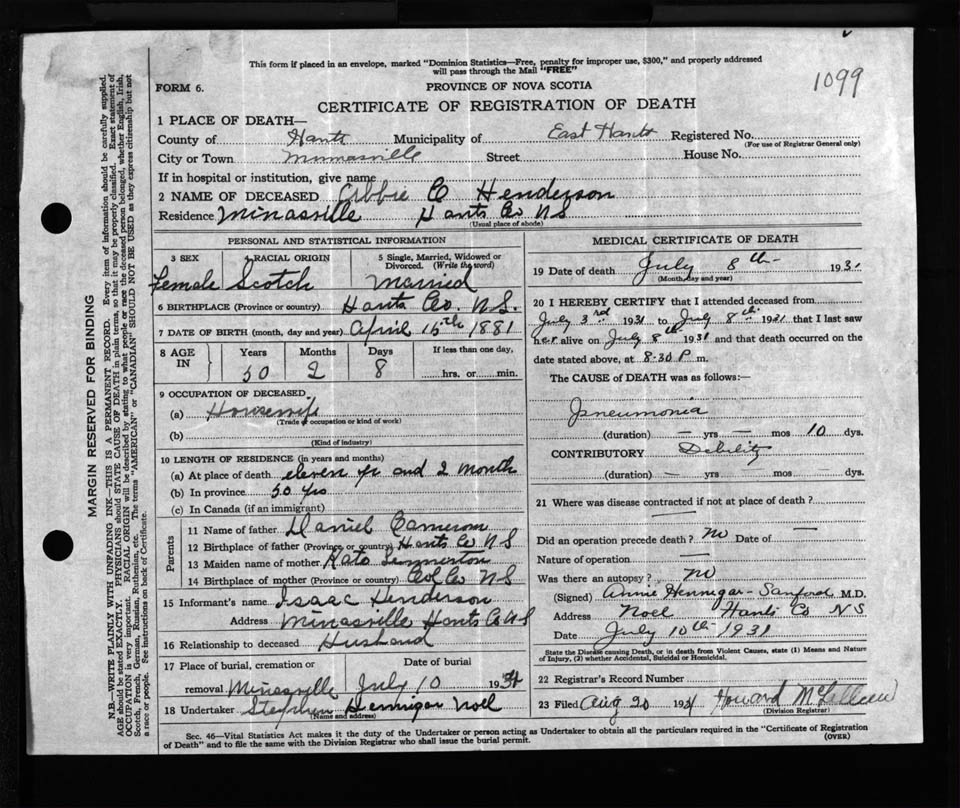 This form if placed in an envelope, marked "Dominion Statistics—Free, penalty for improper use, $300," and properly addressed
will pass through the Mail "FREE"
1099
FORM 6.
PROVINCE OF NOVA SCOTIA
CERTIFICATE OF REGISTRATION OF DEATH
1 PLACE OF DEATH—
County of Hants Municipality of East Hants Registered No.
(For use of Registrar General only)
City or Town Minnasville Street House No.
If in hospital or institution, give name
2 NAME OF DECEASED Abbie C Henderson
Residence Minasville Hants Co NS
(Usual place of abode)
PERSONAL AND STATISTICAL INFORMATION
3 SEX 4 RACIAL ORIGIN 5 Single, Married, Widowed or
Divorced. (Write the word)
Female Scotch Married
6 BIRTHPLACE (Province or country) Hants Co. N.S.
7 DATE OF BIRTH (month, day and year) April 15th 1881
8 AGE IN Years Months Days If less than one day,
50 2 8 hrs. or min.
9 OCCUPATION OF DECEASED
(a) Housewife
(Trade of occupation or kind of work)
(b)
(Kind of industry)
10 LENGTH OF RESIDENCE (in years and months)
(a) At place of death eleven yr and 2 month
(b) In province 50 yrs
(c) In Canada (if an immigrant)
Parents
11 Name of father Daniel Cameron
12 Birthplace of father (Province or country) Hants Co N S
13 Maiden name of mother Kate
14 Birthplace of mother (Province or country) Col Co N S
15 Informant's name Isaac Henderson
Address Minasville Hants Co NS
16 Relationship to deceased Husband
17 Place of burial, cremation or Date of burial
removal Minasville July 10 1931
18 Undertaker Stephen Hennigar Noel
(Name and address)
MEDICAL CERTIFICATE OF DEATH
19 Date of death July 8th 1931
(Month, day and year)
20 I HEREBY CERTIFY that I attended deceased from
July 3rd 1931 to July 8th 1931 that I last saw
her alive on July 8th 1931 and that death occurred on the
date stated above, at 8.30 P m.
The CAUSE of DEATH was as follows:—
Pneumonia
(duration) — yrs — mos 10 dys.
CONTRIBUTORY Debility
(duration) — yrs mos dys.
21 Where was disease contracted if not at place of death?
—
Did an operation precede death? No Date of —
Nature of operation —
Was there an autopsy? No
(Signed) Annie Hennigar-Sanford M.D.
Address Noel Hants Co NS
Date July 10th 1931
State the Disease causing Death, or in death from Violent Causes, state (1) Means and Nature
of Injury, (2) whether Accidental, Suicidal or Homicidal.
22 Registrar's Record Number
23 Filed Aug 20 1931 Howard McLellan
(Division Registrar)
Sec. 46—Vital Statistics Act makes it the duty of the Undertaker or person acting as Undertaker to obtain all the particulars required in the "Certificate of Registration
of Death" and to file the same with the Division Registrar who shall issue the burial permit.
(OVER)
MARGIN RESERVED FOR BINDING
N.B.—WRITE PLAINLY WITH UNFADING INK—THIS IS A PERMANENT RECORD. Every item of information should be carefully supplied.
AGE should be stated EXACTLY. PHYSICIANS should STATE CAUSE OF DEATH in plain terms, so that it may be properly classified. Exact statement of
OCCUPATION is very important. RACIAL ORIGIN will be described by stating to what people or race the deceased person belonged, whether English, Irish,
Scotch, French, German, Russian, Ruthenian, etc. The terms "AMERICAN" or "CANADIAN" SHOULD NOT BE USED as they express citizenship but not
a race or people. See instructions on back of Certificate.